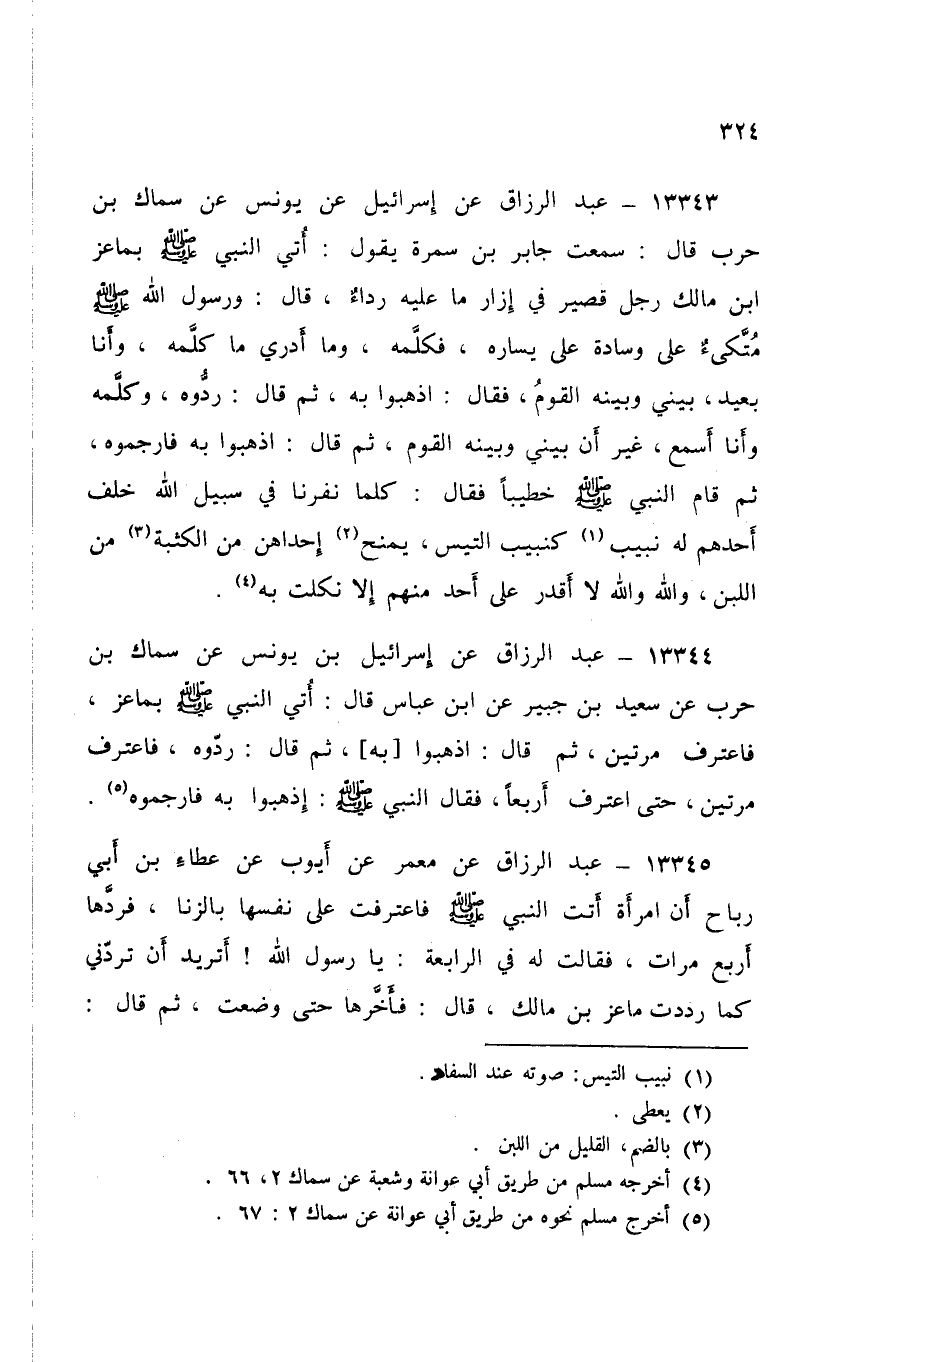 ٣٢٤
١٣٣٤٣ – عبد الرزاق عن إسرائيل عن يونس عن سماك بن
حرب قال : سمعت جابر بن سمرة يقول : أُتي النبي ﷺ بماعز
ابن مالك رجل قصير في إزار ما عليه رداءٌ ، قال : ورسول الله ﷺ
مُتَّكىءٌ على وسادة على يساره ، فكلَّمه ، وما أدري ما كلَّمه ، وأَنا
بعيد ، بيني وبينه القومُ ، فقال : اذهبوا به ، ثم قال : ردُّوه ، وكلَّمه
وأَنا أَسمع ، غير أَن بيني وبينه القوم ، ثم قال : اذهبوا به فارجموه ،
ثم قام النبي ﷺ خطيباً فقال : كلما نفرنا في سبيل الله خلف
أَحدهم له نبيب(١) كنبيب التيس ، يمنح(٢) إحداهن من الكثبة(٣) من
اللبن ، والله والله لا أَقدر على أَحد منهم إلا نكلت به(٤) .
١٣٣٤٤ – عبد الرزاق عن إسرائيل بن يونس عن سماك بن
حرب عن سعيد بن جبير عن ابن عباس قال : أُتي النبي ﷺ بماعز ،
فاعترف مرتين ، ثم قال : اذهبوا [به] ، ثم قال : ردّوه ، فاعترف
مرتين ، حتى اعترف أَربعاً ، فقال النبي ﷺ : إذهبوا به فارجموه(٥) .
١٣٣٤٥ – عبد الرزاق عن معمر عن أَيوب عن عطاء بن أَبي
رباح أَن امرأَة أَتت النبي ﷺ فاعترفت على نفسها بالزنا ، فردَّها
أَربع مرات ، فقالت له في الرابعة : يا رسول الله ! أَتريد أَن تردّني
كما رددت ماعز بن مالك ، قال : فأَخَّرها حتى وضعت ، ثم قال :
(١) نبيب التيس : صوته عند السفاد .
(٢) يعطى .
(٣) بالضم ، القليل من اللبن .
(٤) أخرجه مسلم من طريق أبي عوانة وشعبة عن سماك ٢ ، ٦٦ .
(٥) أخرج مسلم نحوه من طريق أبي عوانة عن سماك ٢ : ٦٧ .